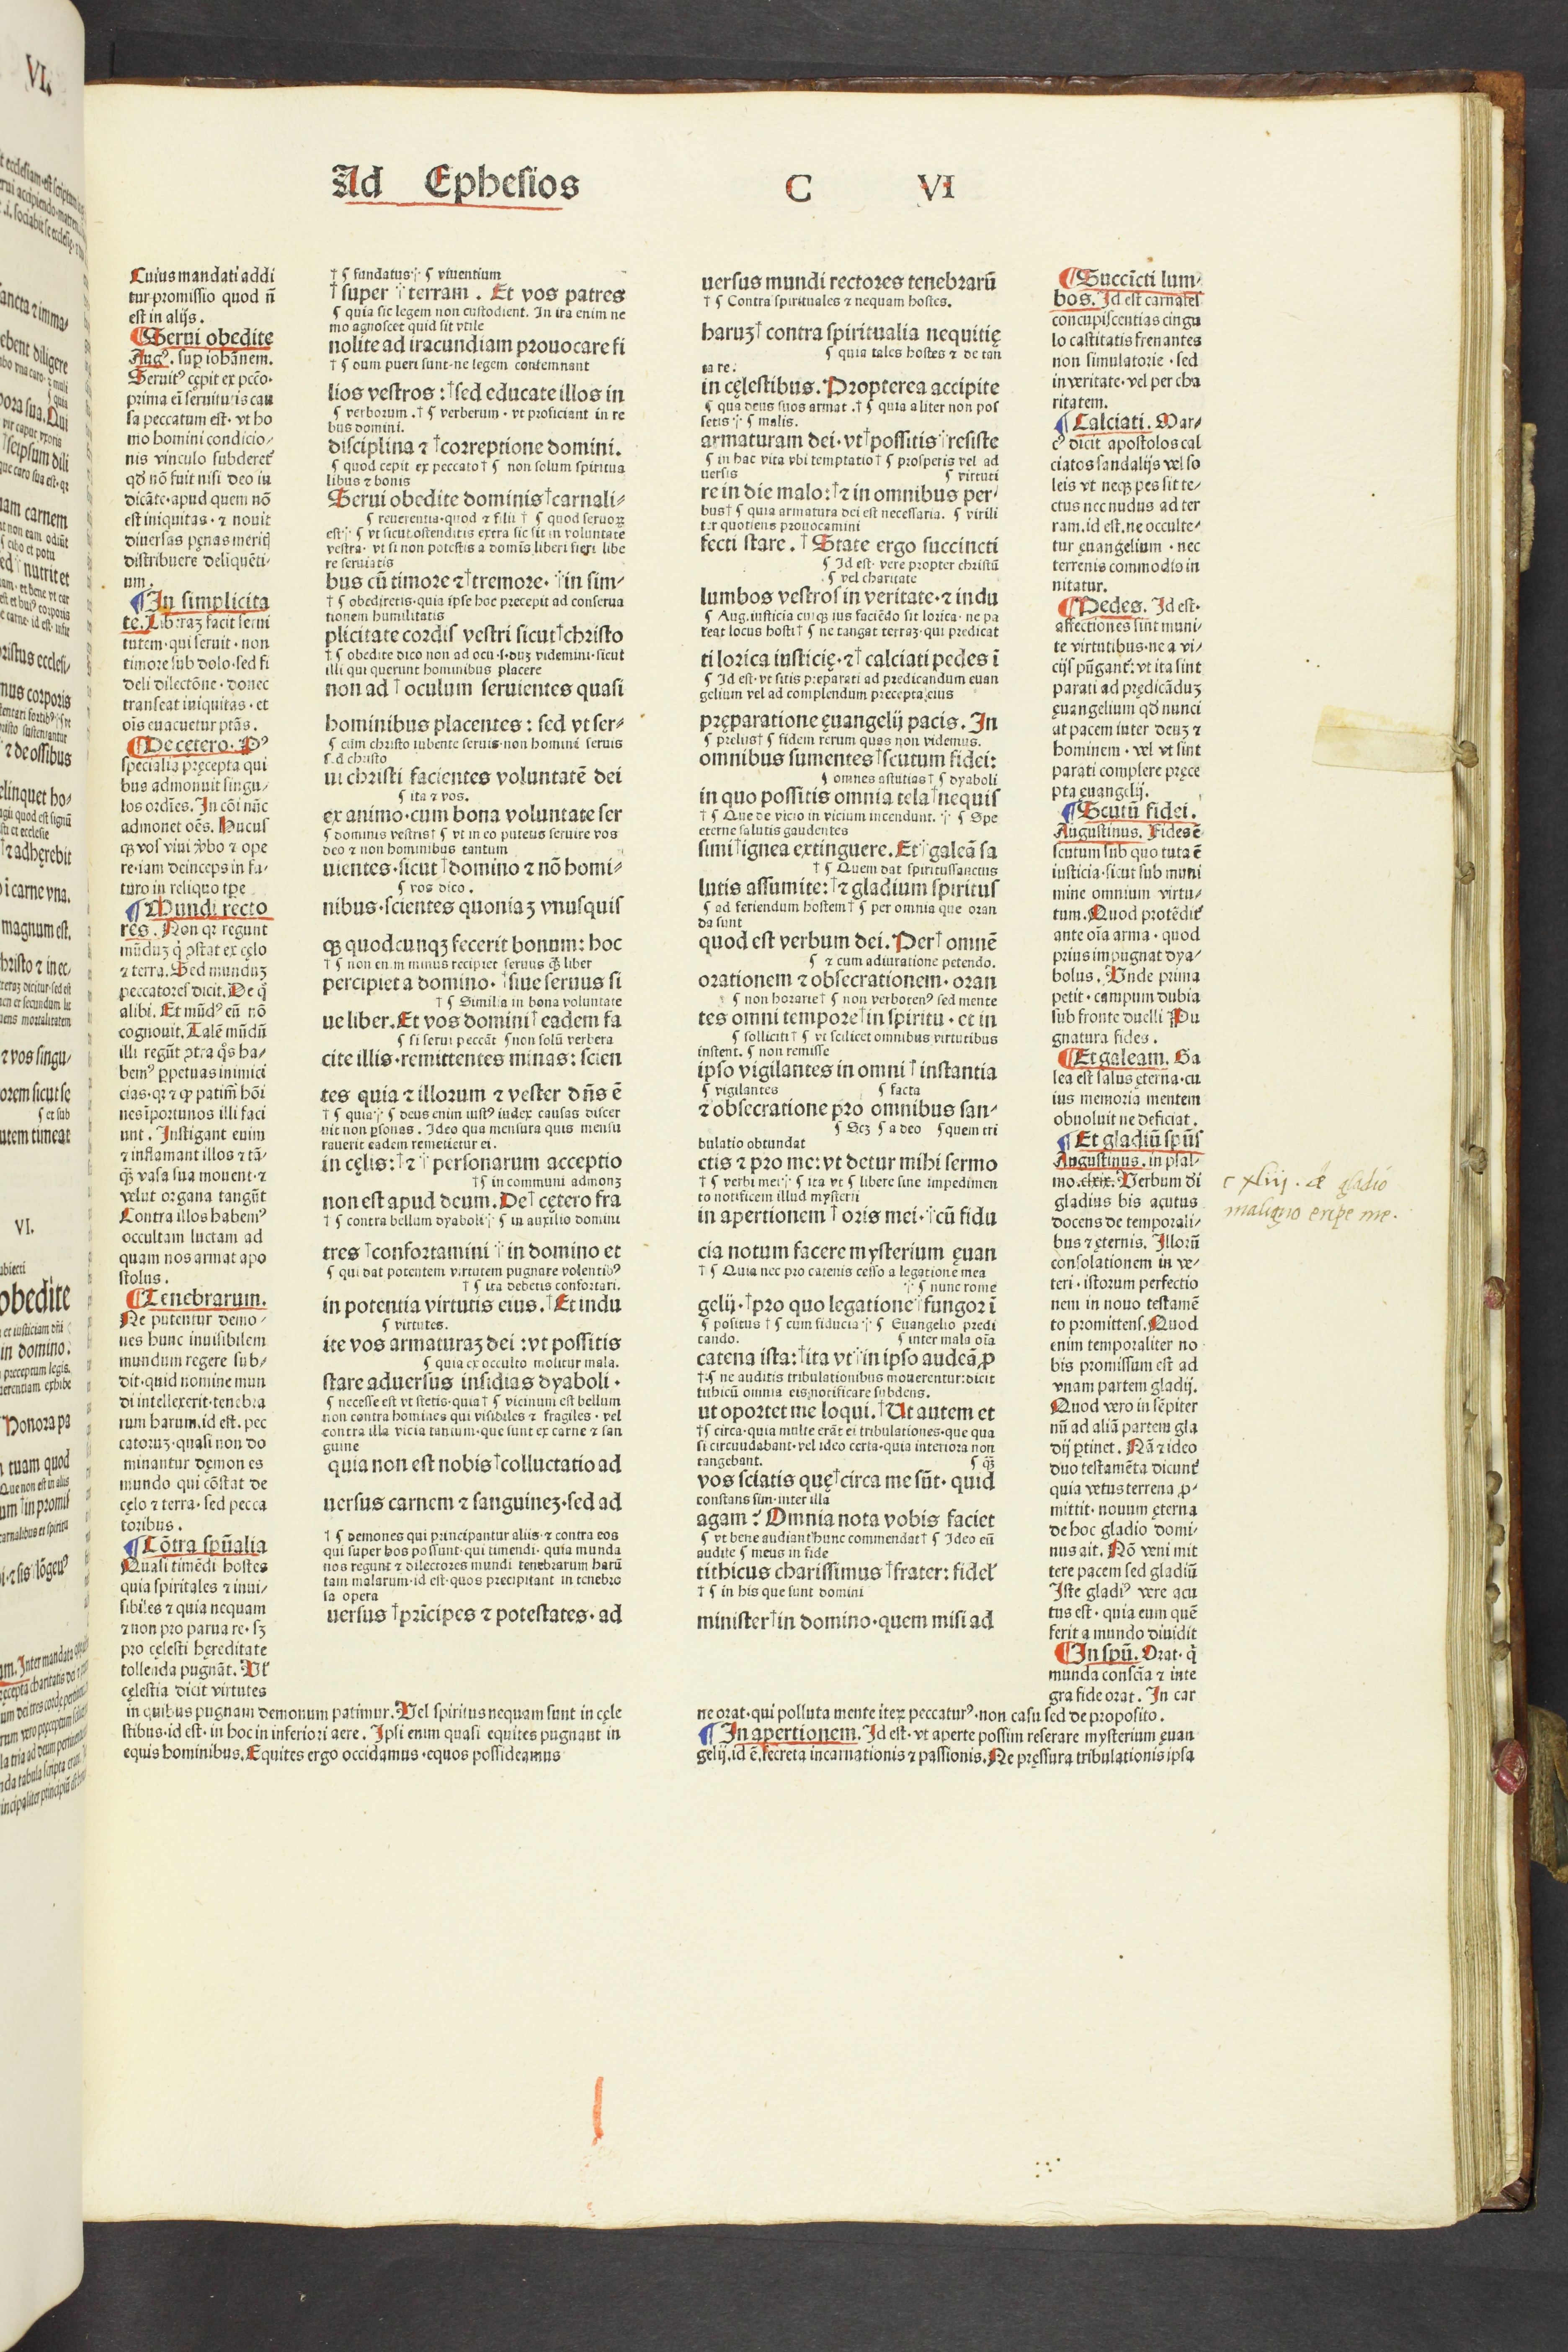 Ad Ephesios C VI
Cuius mandati addi
tur promissio quod n̄
est in alijs.
Serui obedite
Augꝰ. suꝑ iohānem.
Seruitꝰ cępit ex pccō.
prima eī seruitutis cau
sa peccatum est. vt ho
mo homini condicio⸗
nis vinculo subderet᷑
qđ nō fuit nisi deo iu
dicāte. apud quem nō
est iniquitas. ⁊ nouit
diuersas pęnas meritꝭ
distribuere deliquēti⸗
um.
In simplicita
te. Libeꝛaꝫ facit serui
tutem. qui seruit. non
timore sub dolo. sed fi
deli dilectōne. donec
transeat iniquitas. et
oīs euacuetur ptās.
De cetero. Pꝰ
specialia pręcepta qui
bus admonuit singu⸗
los ordīes. In cōi nūc
admonet oēs. Hucus
qꝫ vos viui v̄bo ⁊ ope
re. iam deinceps in fu⸗
turo in reliquo tꝑe
Mundi recto
res. Non qꝛ regunt
mūduꝫ q̇ ꝯstat ex cęlo
⁊ terra. Sed munduꝫ
peccatores dicit. De q̇
alibi. Et mūdꝰ eū nō
cognouit. Talē mūdū
illi regūt ꝯtra q̊s ha⸗
bemꝰ ꝑpetuas inimici
cias. qꝛ ⁊ ꝙ patim̄ hōi
nes īportunos illi faci
unt. Instigant enim
⁊ inflamant illos ⁊ tā⸗
q̄ꝫ vasa sua mouent. ⁊
velut organa tangūt
Contra illos habemꝰ
occultam luctam ad
quam nos armat apo
stolus.
Tenebrarum.
Ne putentur demo⸗
nes hunc inuisibilem
mundum regere sub⸗
dit. quid nomine mun
di intellexerit. tenebra
rum harum. id est. pec
catoruꝫ. quasi non do
minantur dęmones
mundo qui cōstat de
cęlo ⁊ terra. sed pecca
toribus.
Cōtra spūalia
Quasi timēdi hostes
quia spiritales ⁊ inui⸗
sibiles ⁊ quia nequam
⁊ non pro parua re. sꝫ
pro cęlesti hęreditate
tollenda pugnāt. Vl᷑
cęlestia dicit virtutes
in quibus pugnam demonum patimur. Vel spiritus nequam sunt in cęle
stibus. id est. in hoc in inferiori aere. Ipsi enim quasi equites pugnant in
equis hominibus. Equites ergo occidamus. equos possideamus
† ¶ fundatus ⁘ ¶ viuentium
†super ⁘terram. Et vos patres
¶ quia sic legem non custodient. In ira enim ne
mo agnoscet quid sit vtile
nolite ad iracundiam prouocare fi
† ¶ dum pueri sunt. ne legem contemnant
lios vestros: †sed educate illos in
¶ verborum. † ¶ verberum. vt proficiant in re
bus domini.
disciplina ⁊ †correptione domini.
¶ quod cepit ex peccato † ¶ non solum spiritua
libus ⁊ bonis
Serui obedite dominis †carnali⸗
¶ reuerentia. quod ⁊ filii † ¶ quod seruoꝝ
est ⁘ ¶ vt sicut. ostenditis extra sic sit in voluntate
vestra. vt si non potestis a domīs liberi fieri libe
re seruiatis
bus cū timore ⁊ †tremore. ⁘in sim⸗
† ¶ obedietis. quia ipse hoc precepit ad conserua
tionem humilitatis
plicitate cordis vestri sicut †christo
† ¶ obedite dico non ad ocu. s. duꝫ videmini. sicut
illi qui querunt hominibus placere
non ad †oculum seruientes quasi
hominibus placentes: sed vt ser⸗
¶ cum christo iubente seruis. non homini seruis
s. d christo
ui christi facientes voluntatē dei
¶ ita ⁊ vos.
ex animo. cum bona voluntate ser
¶ dominis vestris † ¶ vt in eo putetis seruire vos
deo ⁊ non hominibus tantum
uientes. sicut †domino ⁊ nō homi⸗
¶ vos dico.
nibus. scientes quoniaꝫ vnusquis
qꝫ quodcunqꝫ fecerit bonum: hoc
† ¶ non enim minus recipiet seruus q̄ꝫ liber
percipiet a domino. †siue seruus si
† ¶ Similia in bona voluntate
ue liber. Et vos domini †eadem fa
¶ si serui peccāt ¶ non solū verbera
cite illis. remittentes minas: scien
tes quia ⁊ illorum ⁊ vester dn̄s ē
† ¶ quia ⁘ ¶ deus enim iustꝰ iudex causas discer
nit non ꝑsonas. Ideo qua mensura quis mensu
rauerit eadem remetietur ei.
in cęlis: †⁊ ⁘ personarum acceptio
† ¶ in communi admonꝫ
non est apud deum. De †cętero fra
† ¶ contra bellum dyaboli ⁘ ¶ in auxilio domini
tres †confortamini ⁘in domino et
¶ qui dat potentem virtutem pugnare volentibꝰ
† ¶ ita debetis confortari.
in potentia virtutis eius. †Et indu
¶ virtutes.
ite vos armaturaꝫ dei: vt possitis
¶ quia ex occulto molitur mala.
stare aduersus insidias dyaboli.
¶ necesse est vt stetis. quia † ¶ vicinum est bellum
non contra homines qui visibiles ⁊ fragiles. vel
contra illa vicia tantum. que sunt ex carne ⁊ san
guine
quia non est nobis †colluctatio ad
uersus carnem ⁊ sanguineꝫ. sed ad
† ¶ demones qui principantur aliis. ⁊ contra eos
qui super hos possunt. qui timendi. quia munda
nos regunt ⁊ dilectores mundi tenebrarum harū
tam malarum. id est. quos precipitant in tenebro
sa opera
uersus †prīcipes ⁊ potestates. ad
uersus mundi rectores tenebrarū
† ¶ Contra spirituales ⁊ nequam hostes.
haruꝫ †contra spiritualia nequitię
¶ quia tales hostes ⁊ de tan
ta re.
in cęlestibus. Propterea accipite
¶ qua deus suos armat. † ¶ quia aliter non pos
setis ⁘ ¶ malis.
armaturam dei. vt †possitis ⁘resiste
¶ in hac vita vbi temptatio † ¶ prosperis vel ad
uersis ¶ virtuti
re in die malo: †⁊ in omnibus per⸗
bus † ¶ quia armatura dei est necessaria. ¶ virili
ter quotiens prouocamini
fecti stare. † State ergo succincti
¶ Id est. vere propter christū
¶ vel charitate
lumbos vestros in veritate. ⁊ indu
¶ Aug. iusticia cuiqꝫ ius faciēdo sit lorica. ne pa
teat locus hosti † ¶ ne tangat terraꝫ. qui predicat
ti lorica iusticię. ⁊ †calciati pedes ī
¶ Id est. vt sitis preparati ad predicandum euan
gelium vel ad complendum precepta eius
pręparatione ęuangelij pacis. In
¶ preliis † ¶ fidem rerum quas non videmus.
omnibus sumentes †scutum fidei:
¶ omnes astutias † ¶ dyaboli
in quo possitis omnia tela †nequis
† ¶ Que de vicio in vicium incendunt. ⁘ ¶ Spe
eterne salutis gaudentes
simi †ignea extinguere. Et ⁘galeā sa
† ¶ Quem dat spiritussanctus
lutis assumite: †⁊ gladium spiritus
¶ ad feriendum hostem † ¶ per omnia que oran
da sunt
quod est verbum dei. Per †omnē
¶ ⁊ cum adiuratione petendo.
orationem ⁊ obsecrationem. oran
¶ non horarie † ¶ non verbotenꝰ sed mente
tes omni tempore †in spiritu. et in
¶ solliciti † ¶ vt scilicet omnibus virtutibus
instent. ¶ non remisse
ipso vigilantes in omni †instantia
¶ vigilantes ¶ facta
⁊ obsecratione pro omnibus san⸗
¶ Scꝫ ¶ a deo ¶ quem tri
bulatio obtundat
ctis ⁊ pro me: vt detur mihi sermo
† ¶ verbi mei ⁘ ¶ ita vt ¶ libere sine impedimen
to notificem illud mysterii
in apertionem †oris mei. ⁘cū fidu
cia notum facere mysterium ęuan
† ¶ Quia nec pro catenis cesso a legatione mea
⁘ ¶ nunc rome
gelij. †pro quo legatione ⁘fungor ī
¶ positus † ¶ cum fiducia ⁘ ¶ Euangelio predi
cando. ¶ inter mala oīa
catena ista: †ita vt ⁘in ipso audeā, ꝓ
† ¶ ne auditis tribulationibus mouerentur: dicit
tithicū omnia eis notificare subdens.
ut oportet me loqui. †Ut autem et
† ¶ circa. quia multe erāt ei tribulationes. que qua
si circundabant. vel ideo certa. quia interiora non
tangebant. ¶ q̄ꝫ
vos sciatis quę †circa me sūt. quid
constans sim. inter illa
agam: Omnia nota vobis faciet
¶ vt bene audiant hunc commendat † ¶ Ideo eū
audite ¶ meus in fide
tithicus charissimus †frater: fidel᷑
† ¶ in his que sunt domini
minister †in domino. quem misi ad
Succīcti lum⸗
bos. Id est carnales
concupiscentias cingu
lo castitatis frenantes
non simulatorie. sed
in veritate. vel per cha
ritatem.
Calciati. Mar⸗
cꝰ dicit apostolos cal
ciatos sandalijs vel so
leis vt neqꝫ pes sit te⸗
ctus nec nudus ad ter
ram. id est. ne occulte⸗
tur ęuangelium. nec
terrenis commodis in
nitatur.
Pedes. Id est.
affectiones sint muni⸗
te virtutibus. ne a vi⸗
cijs pūgant᷑: vt ita sint
parati ad prędicāduꝫ
ęuangelium qđ nunci
at pacem inter deuꝫ ⁊
hominem. vel vt sint
parati complere pręce
pta ęuangelij.
Scutū fidei.
Augustinus. Fides ē
scutum sub quo tuta ē
iusticia. sicut sub muni
mine omnium virtu⸗
tum. Quod protēdit᷑
ante oīa arma. quod
prius impugnat dya⸗
bolus. Vnde prima
petit. campum dubia
sub fronte duelli Pu
gnatura fides.
Et galeam. Ga
lea est salus ęterna. cu
ius memoria mentem
obuoluit ne deficiat.
Et gladiū spūs
Augustinus. in psal⸗
mo. clxix. Verbum di
gladius bis acutus
docens de temporali⸗
bus ⁊ ęternis. Illorū
consolationem in ve⸗
teri. istorum perfectio
nem in nouo testamē
to promittens. Quod
enim temporaliter no
bis promissum est ad
vnam partem gladij.
Quod vero in sēpiter
nū ad aliā partem gla
dij ꝑtinet. Nā ⁊ ideo
duo testamēta dicunt᷑
quia vetus terrena ꝓ⸗
mittit. nouum ęterna
de hoc gladio domi⸗
nus ait. Nō veni mit
tere pacem sed gladiū
Iste gladiꝰ vere acu
tus est. quia eum quē
ferit a mundo diuidit
In spū. Orat. q̇
munda consciā ⁊ inte
gra fide orat. In car
ne orat. qui polluta mente iteꝝ peccaturꝰ. non casu sed de proposito.
In apertionem. Id est. vt aperte possim reserare mysterium ęuan
gelij. id ē. secreta incarnationis ⁊ passionis. Ne pręssura tribulationis ipsa
c xliij. de gladio
maligno eripe me.